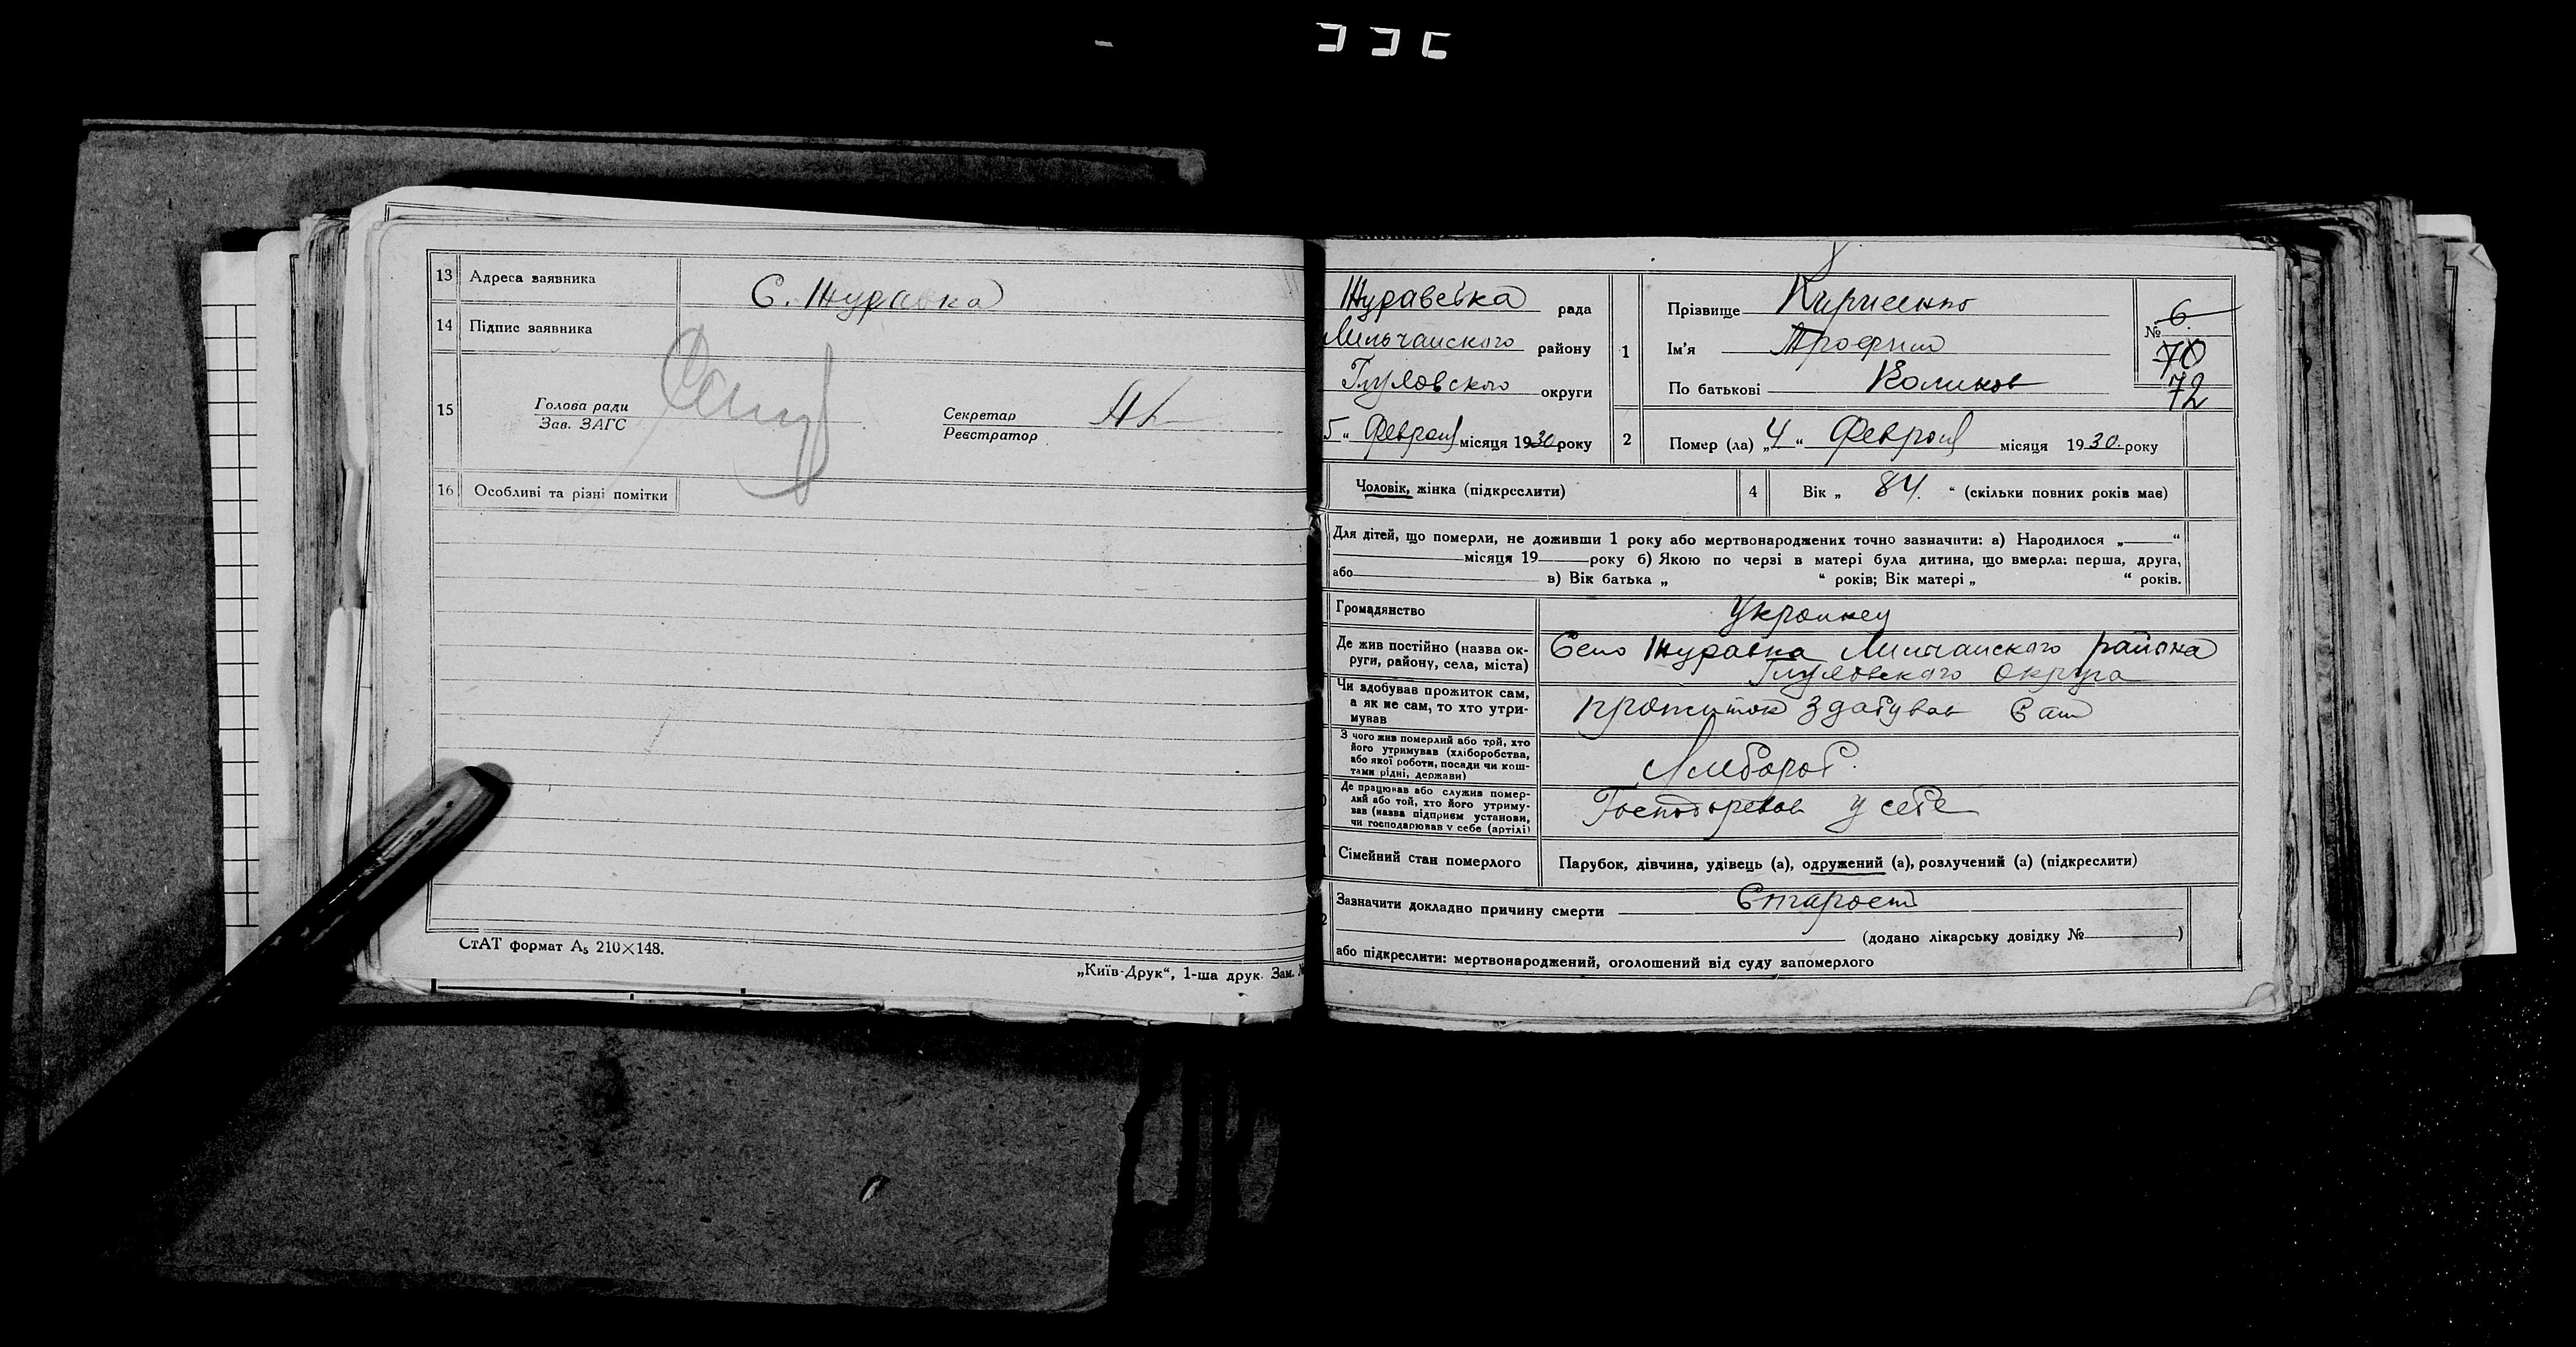 13 Адреса заявника С. Журавка
14 Підпис заявника
15 Голова ради
Зав. ЗАГС
Секретар
Реєстратор
16 Особливі та різні помітки
СтАТ формат А5 210×148.
„Київ-Друк“, 1-ша друк. Зам. №
Журавська рада
району
округи
5 “ Февраля місяця 1930 року
1 Прізвище Кириенко
Ім'я Трофим
По батькові
№ 6.
70
72
2 Помер (ла) „4“ Февраля місяця 1930 року
Чоловік, жінка (підкреслити)
4 Вік „ 84. “ (скільки повних років мав)
Для дітей, що померли, не доживши 1 року або мертвонароджених точно зазначити: а) Народилося „ “
місяця 19 року б) Якою по черзі в матері була дитина, що вмерла: перша, друга,
або в) Вік батька „ “ років; Вік матері „ “ років.
Громадянство Украинец
Де жив постійно (назва ок-
руги, району, села, міста)
Село Журавка района
Округа
Чи здобував прожиток сам,
а як не сам, то хто утри-
мував
прожиток здабував Сам
З чого жив померлий або той, хто
його утримував (хліборобства,
або якої роботи, посади чи кош-
тами рідні, держави)
Де працював або служив помер-
лий або той, хто його утриму-
вав (назва підприєм установи,
чи господарював у себе (артілі)
у себе
Сімейний стан померлого Парубок, дівчина, удівець (а), одружений (а), розлучений (а) (підкреслити)
Зазначити докладно причину смерти Старост
(додано лікарську довідку № )
або підкреслити: мертвонароджений, оголошений від суду запомерлого